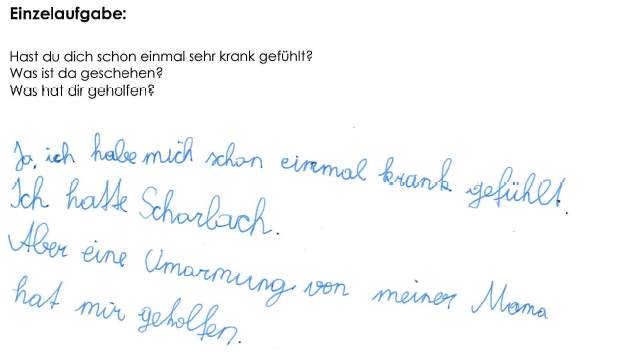 Einzelaufgabe:
Hast du dich schon einmal sehr krank gefühlt?
Was ist da geschehen?
Was hat dir geholfen?
Ja, ich habe mich schon einmal krank gefühlt.
Ich hatte Scharlach.
Aber eine Umarmung von meiner Mama
hat mir geholfen.